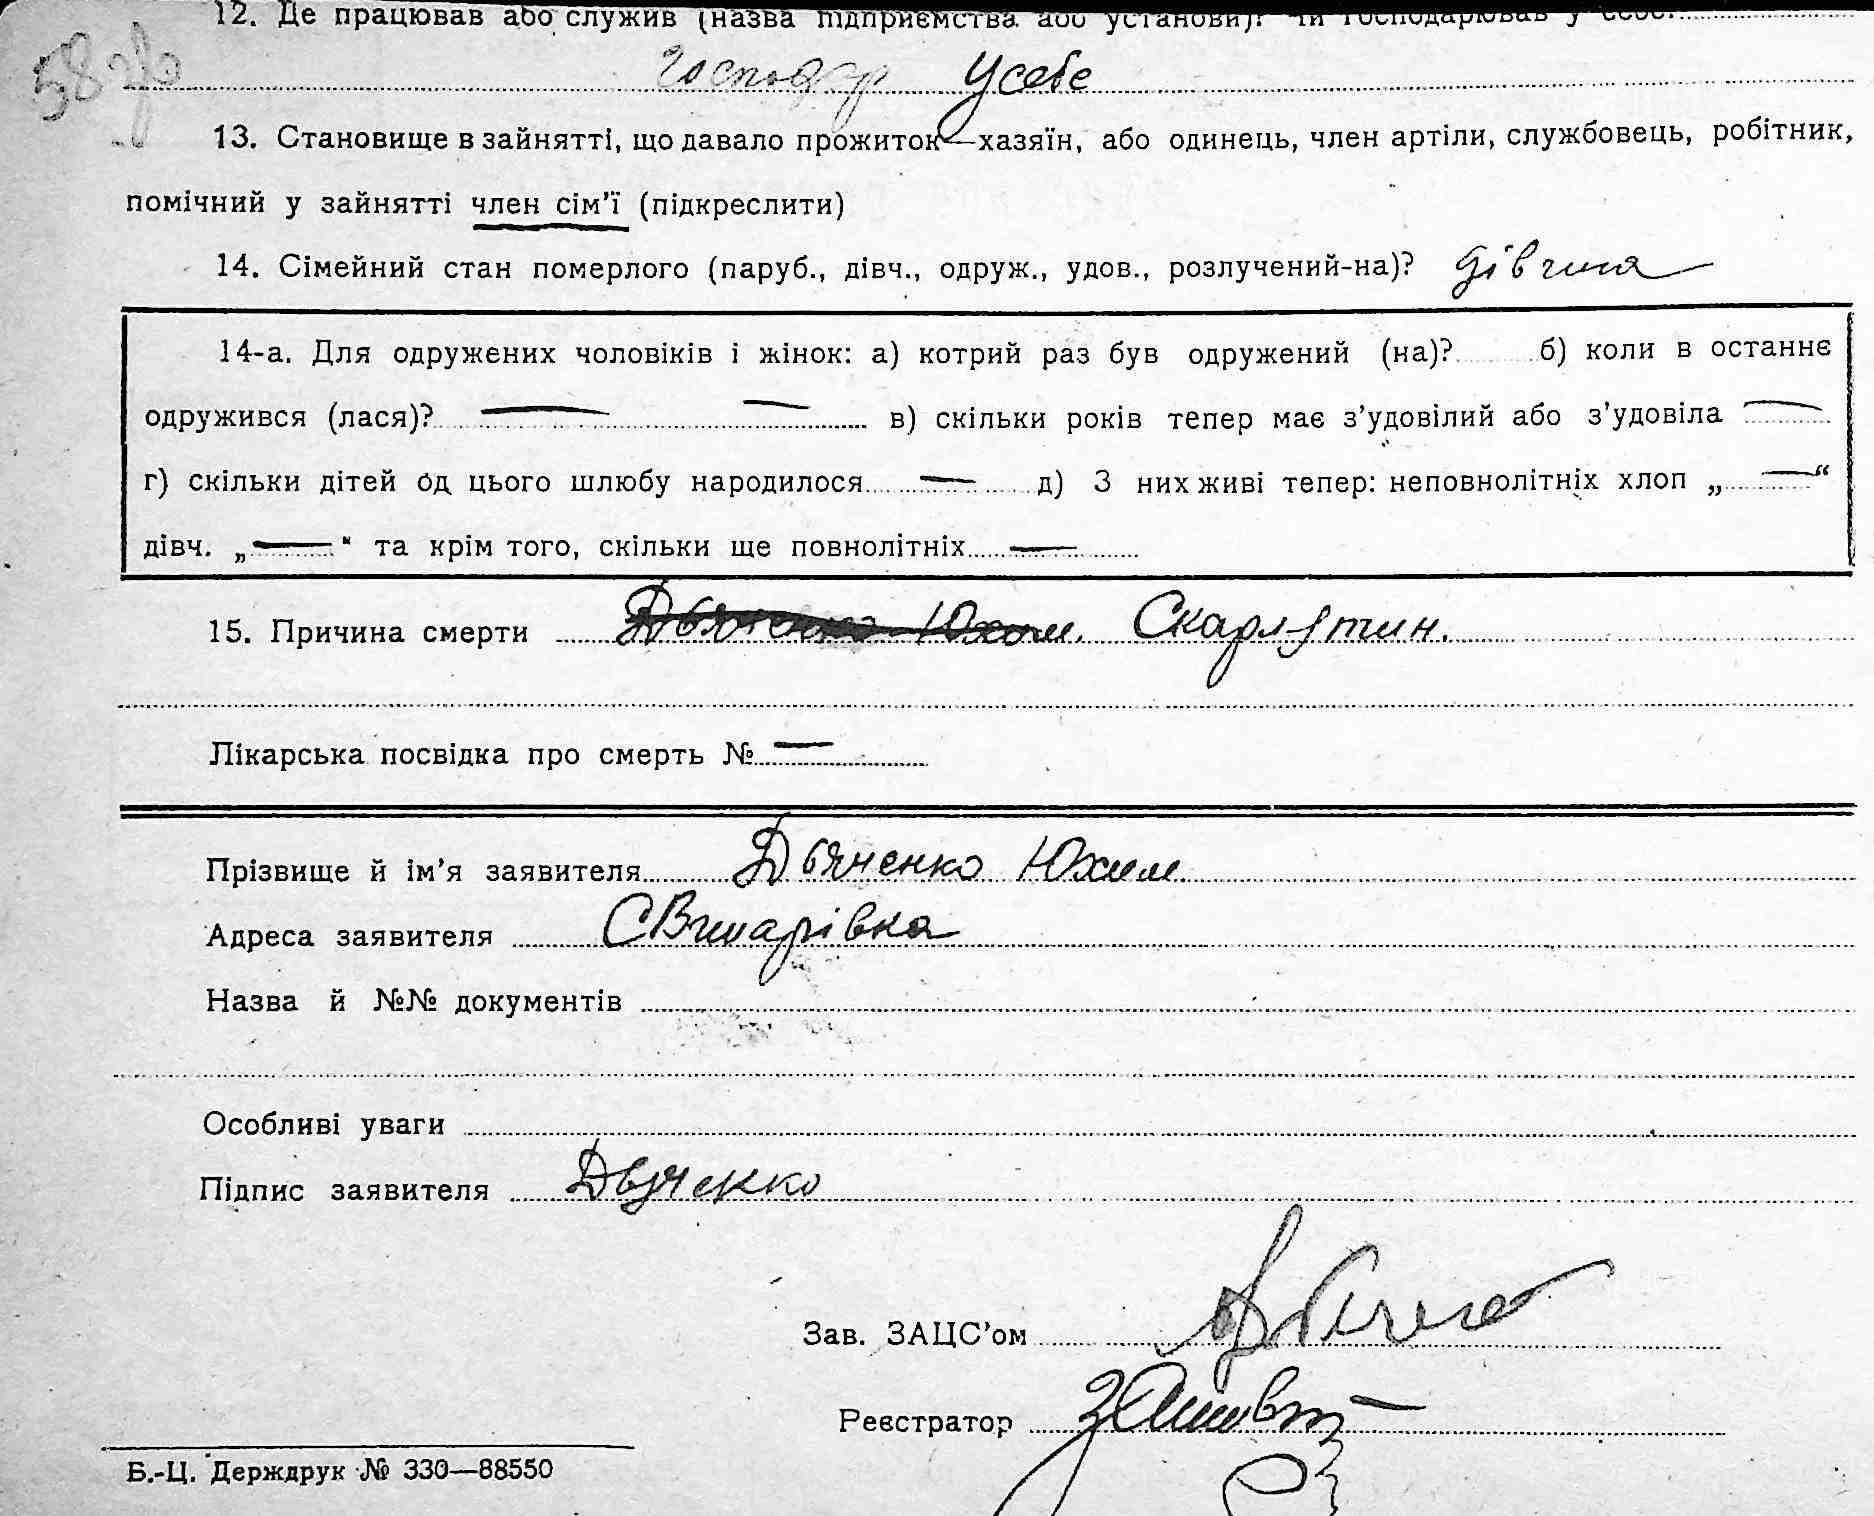 12. Де працював або служив (назва підприємства або установи)? Чи господарював у себе?
58
господар у себе
13. Становище в зайнятті, що давало прожиток—хазяїн, або одинець, член артіли, службовець, робітник,
помічний у зайнятті член сім'ї (підкреслити)
14. Сімейний стан померлого (паруб., дівч., одруж., удов., розлучений-на)? дівчина
14-а. Для одружених чоловіків і жінок: а) котрий раз був одружений (на)? б) коли в останнє
одружився (лася)? — — в) скільки років тепер має з'удовілий або з'удовіла —
г) скільки дітей од цього шлюбу народилося — д) З них живі тепер: неповнолітніх хлоп „ — “
дівч. „ — “ та крім того, скільки ще повнолітніх —
15. Причина смерти Дьяченко Юхим. Скарлятин.
Лікарська посвідка про смерть № —
Прізвище й ім'я заявителя Дьяченко Юхим
Адреса заявителя С Вчинарівка
Назва й №№ документів
Особливі уваги
Підпис заявителя Дьяченко
Зав. ЗАЦС'ом
Реєстратор
Б.-Ц. Держдрук № 330—88550